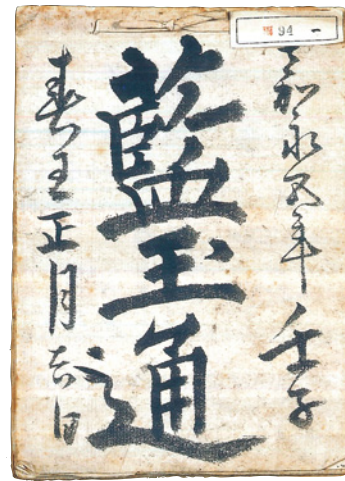 94 一
嘉永五年壬子
藍玉通
春王正月吉日